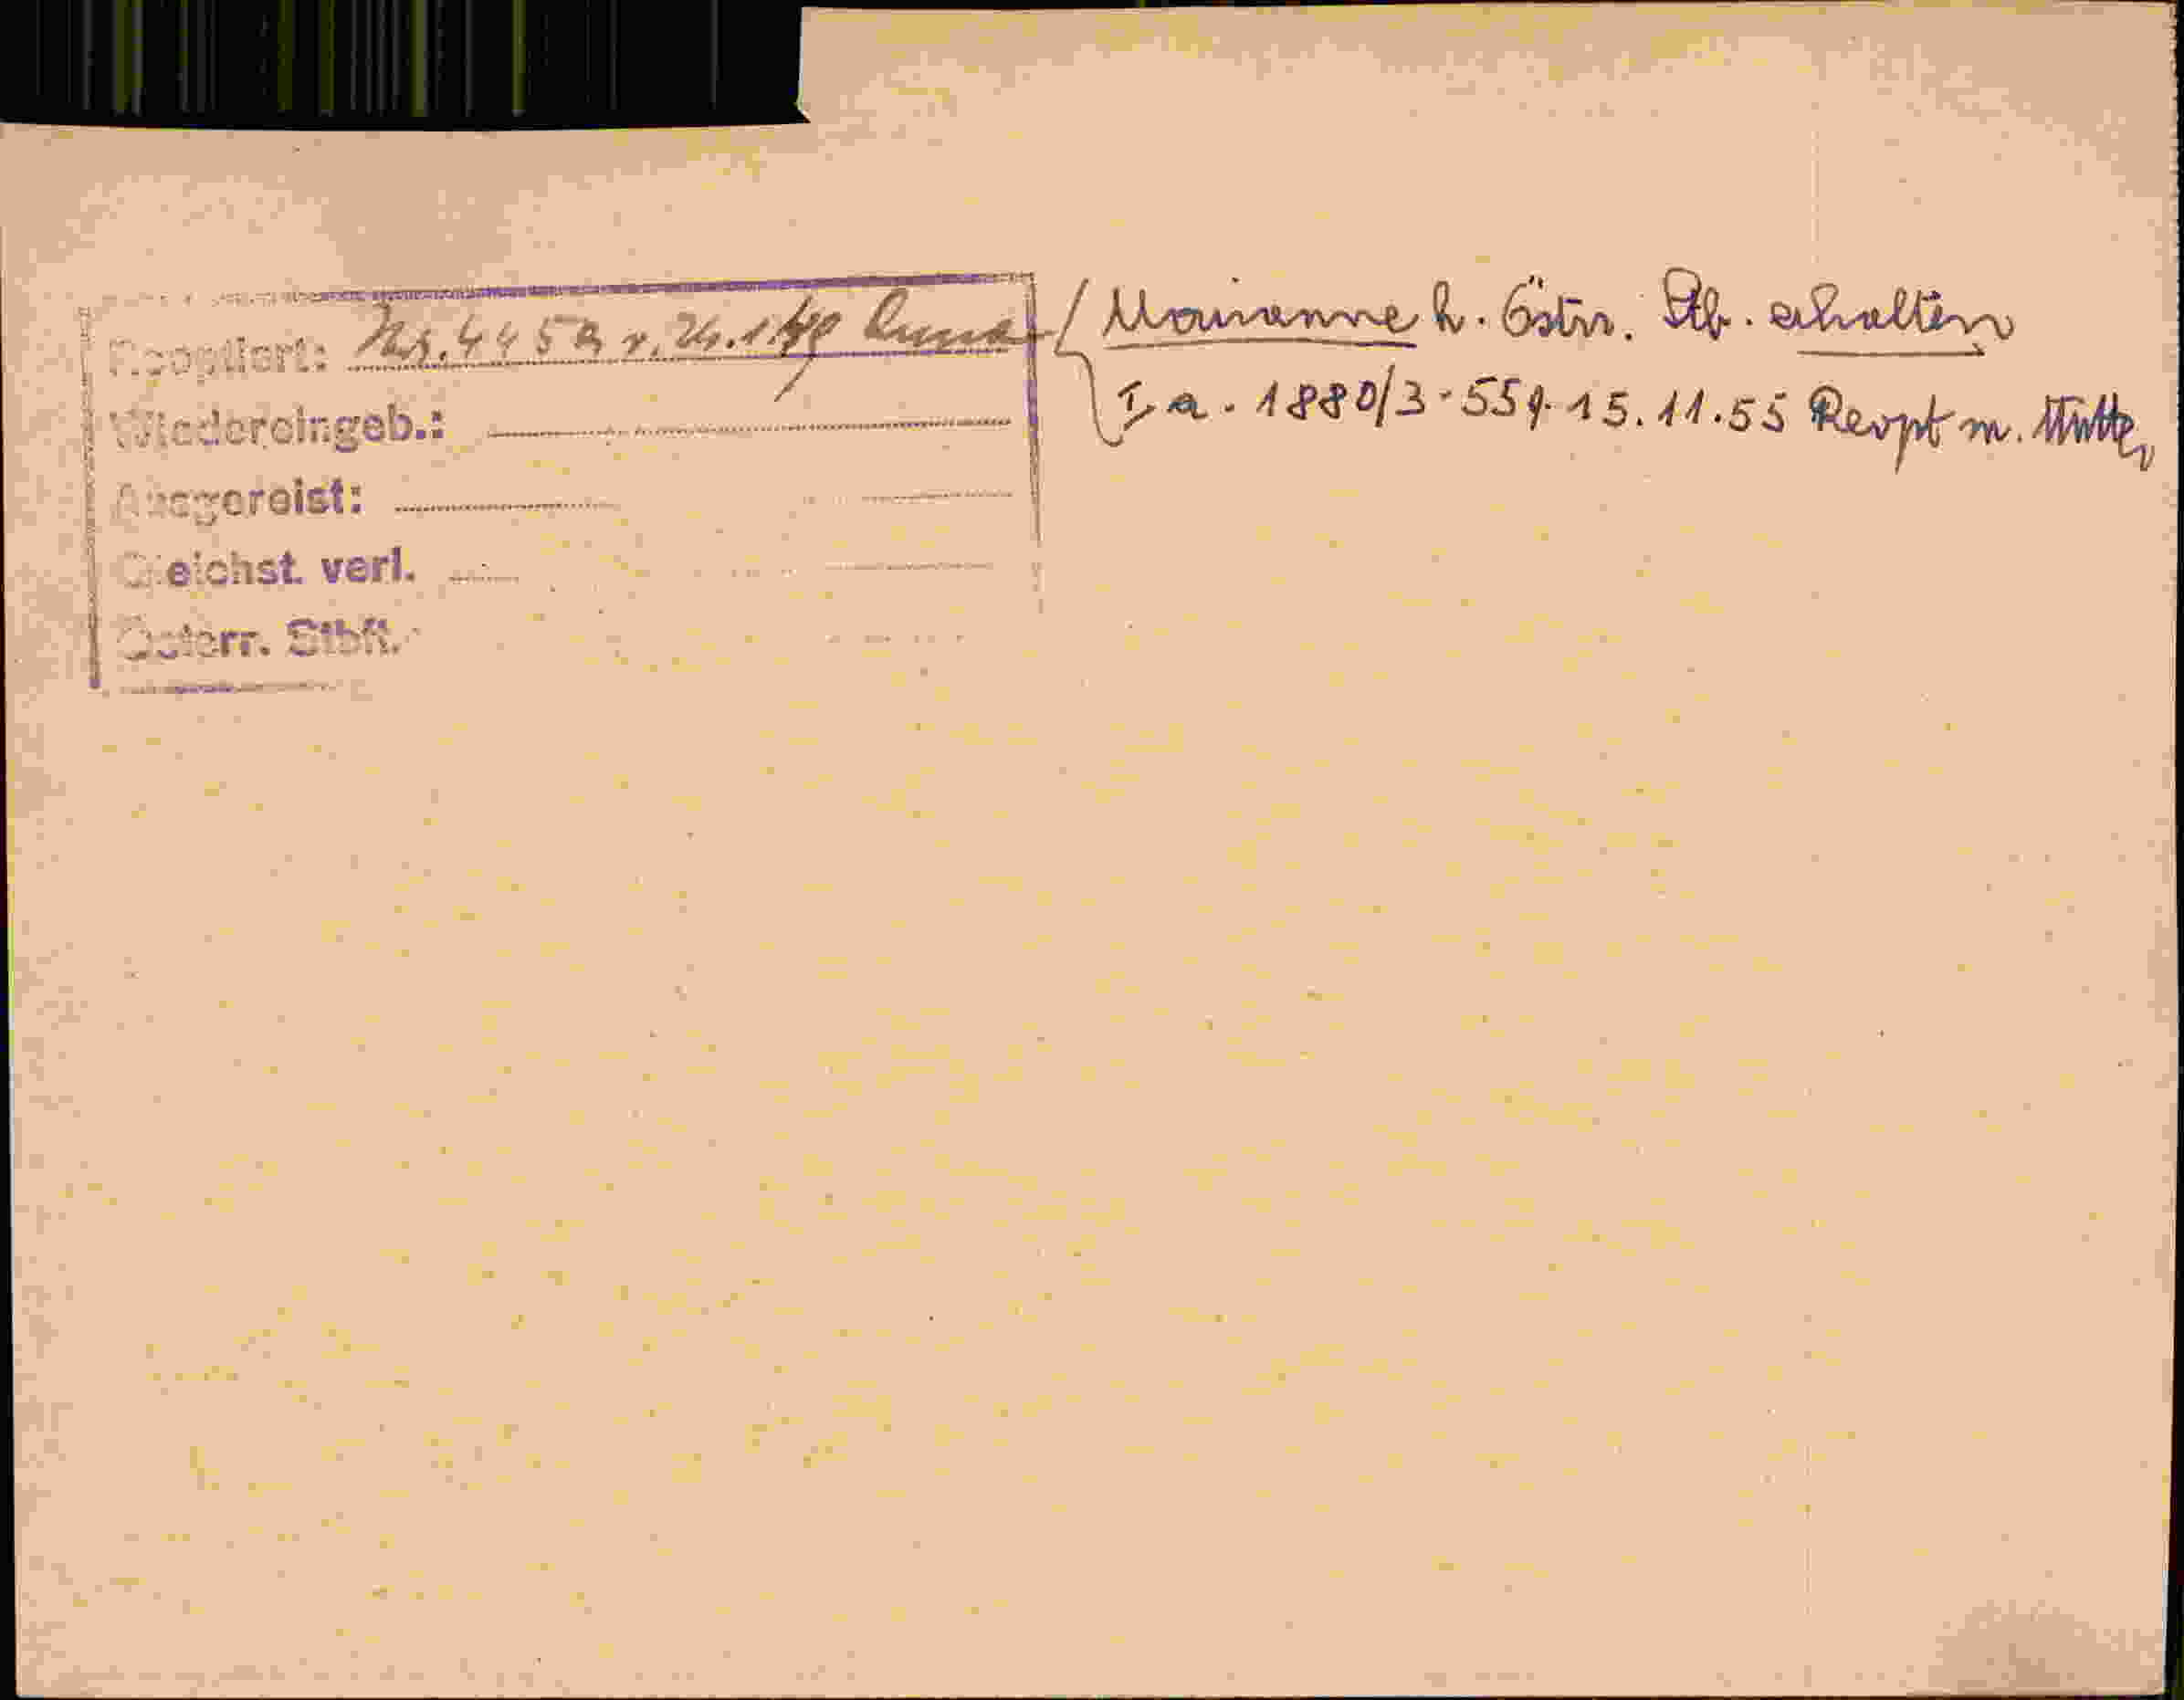 Reoptiert: Nr. 4459 v. 26.1.49 Anna
Marianne h. Östr. Stb. erhalten
I a. 1880/3-55 v. 15.11.55 Reopt m. Mutter
Wiedereingeb.:
Ausgereist:
Gleichst. verl.
Österr. Stbft.